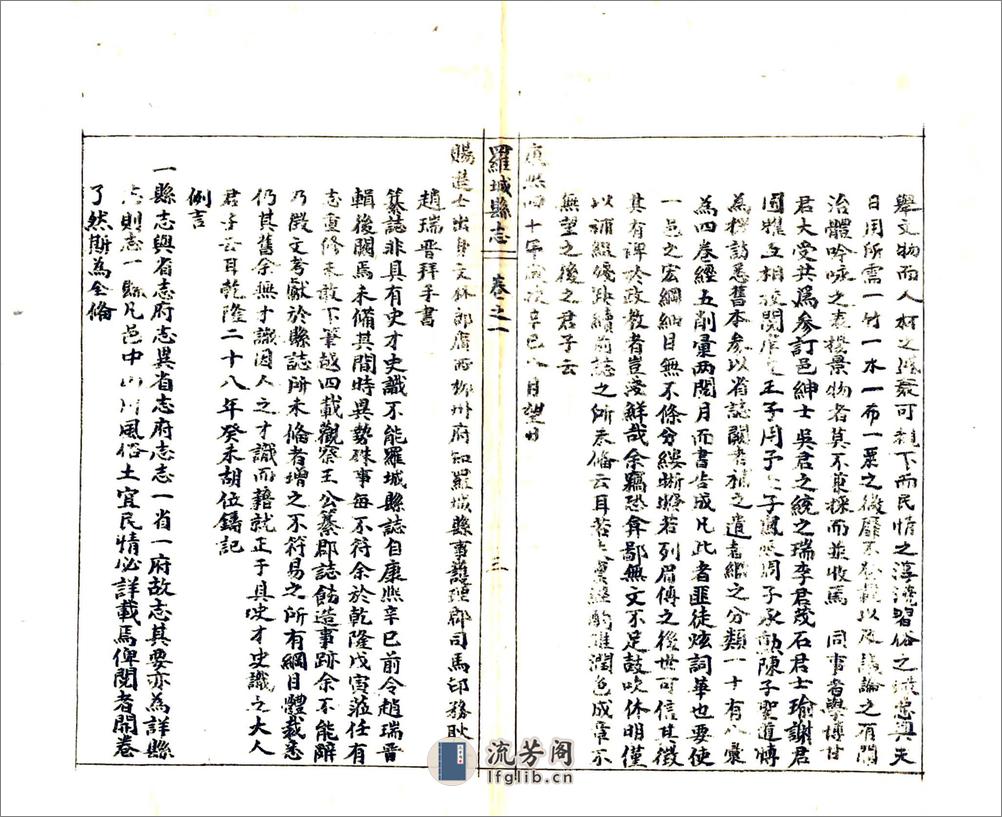 舉文物而人材之潛可知下而民情之淳澆習俗之與夫
日用所需一竹一水一布一粟之微靡不以及議論之有關
治體吟咏之袁景物者莫不兼採而並收焉 同事者學博甘
君大受共為參訂邑紳士吳君之統之瑞李君茂石君士瑜謝君
國互相校閱王子用予子鳳周子承勳陳子聖道博
為搜訪悉舊本參以省誌闕者補之遺者繼之分類一十有八彙
為四卷經五削彙兩閱月而書告成凡此者匪徒炫詞華也要使
一邑之宏綱細目無不條分縷晰將若列眉傳之後世可信其徵
其有裨於政教者豈淺鮮哉余竊恐弇鄙無文不足鼓吹休明僅
以補綴殘缺續前誌之所未備云耳若夫潤色成章不
無望之後之君子云
康熙四十年歲次辛巳八月望日
羅城縣志 卷之一 三
賜進士出身文林郎廣西柳州府知羅城縣事護理郡司馬印務耿
趙瑞晉拜手書
纂誌非具有史才史識不能羅城縣誌自康熙辛巳前令趙瑞晉
輯後闕焉未備其間時異勢殊事每不符余於乾隆戊寅蒞任有
志重修未敢下筆越四載觀察王公纂郡誌飭造事跡余不能辭
乃徵文考獻於縣誌所未備者增之不符易之所有綱目體裁悉
仍其舊余無才識因人之才識而藉就正于具史才史識之大人
君子云耳乾隆二十八年癸未胡位鑄記
例言
一縣志與省志府志異省志府志志一省一府故志其要亦為詳縣
志則志一縣凡邑中山川風俗土宜民情必詳載焉俾閱者開卷
了然斯為全備
流芳阁
lfglib.cn